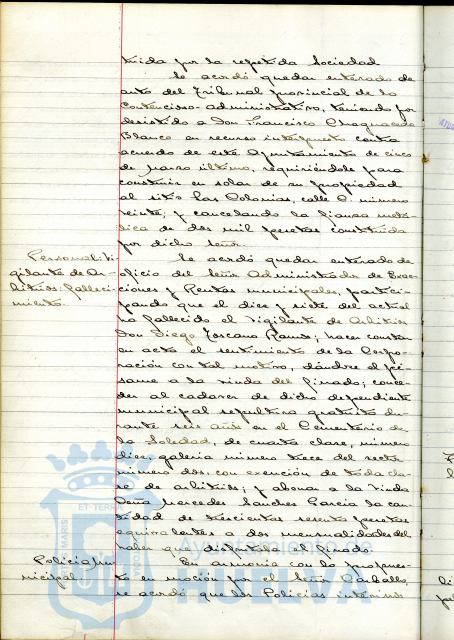 truida por la repetida Sociedad
Se acordó quedar enterado de
auto del Tribunal provincial de lo
Contencioso-administrativo, teniendo por
desistido a Don Francisco Chaguaceda
Blanco en recurso interpuesto contra
acuerdo de este Ayuntamiento de cinco
de marzo último, requiriéndole para
construir en solar de su propiedad
al sitio las Colonias, calle C. número
veinte; y cancelando la fianza metá-
lica de dos mil pesetas constituida
por dicho señor.
Personal: Vi-
gilante de Ar-
bitrios: falleci-
miento.
Se acordó quedar enterado de
oficio del Señor Administrador de Exac-
ciones y Rentas municipales, partici-
pando que el diez y siete del actual
ha fallecido el Vigilante de Arbitrios
Don Diego Toscano Ramos; hacer constar
en acta el sentimiento de la Corpo-
ración con tal motivo, dándose el pé-
same a la viuda del finado; conce-
der al cadaver de dicho dependiente
municipal sepultura gratuita du-
rante seis años en el Cementerio de
la Soledad, de cuarta clase, número
diez, galería número trece del recinto
número dos, con exención de toda cla-
se de arbitrios; y abonar a la viuda
Doña Mercedes Sanchez Garcia la can-
tidad de trescientas sesenta pesetas
equivalentes a dos mensualidades del
haber que disfrutaba el finado.
Policia mu-
nicipal:
En armonia con lo propues-
to en moción por el Señor Carballo,
se acordó que los Policias interinos
Ayuntamiento de
HUELVA